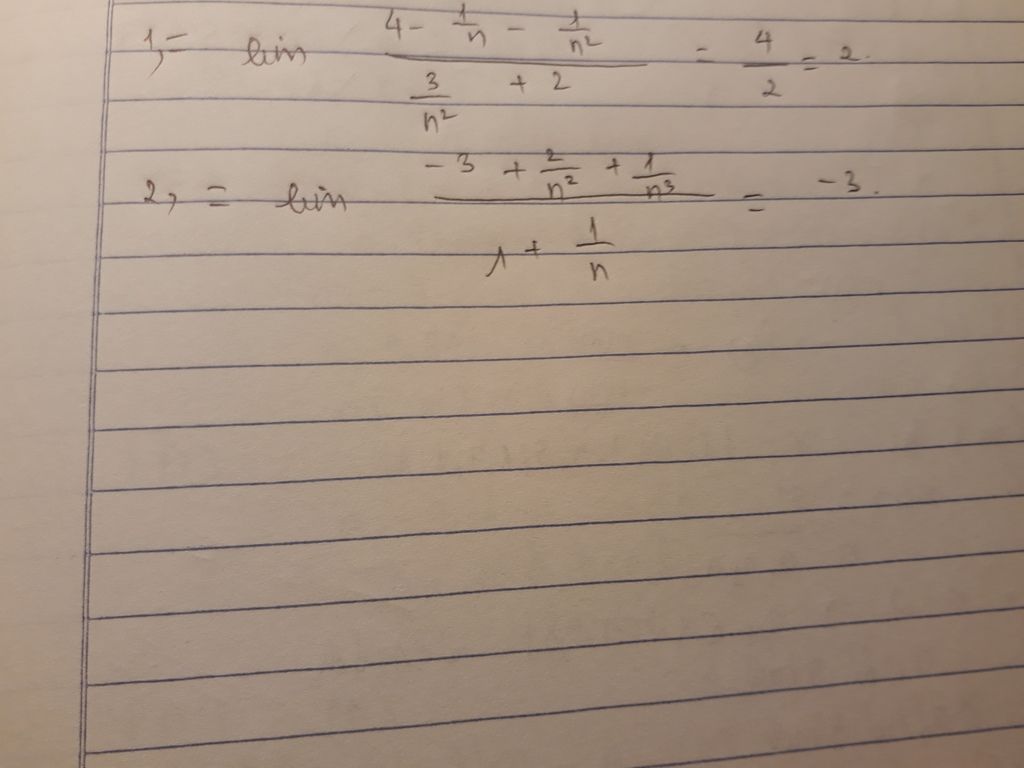 1, = lim (4 - 1/n - 1/n²) / (3/n² + 2) = 4/2 = 2.
2, = lim (-3 + 2/n² + 1/n³) / (1 + 1/n) = -3.